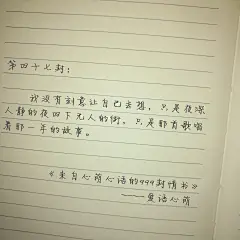 第四十七封：
我没有刻意让自己去想，只是夜深
人静的夜四下无人的街。只是那首歌唱
着那一年的故事。
《来自心萌心话的999封情书》
——鱼话心萌